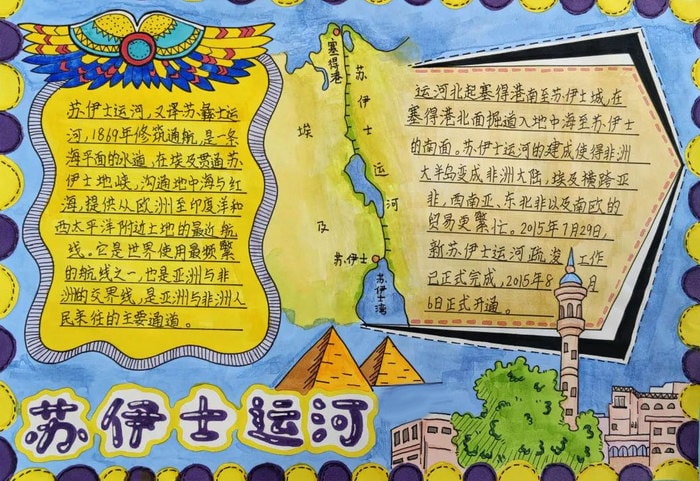 苏伊士运河,又译苏彝士运
河,1869年修筑通航,是一条
海平面的水道,在埃及贯通苏
伊士地峡,沟通地中海与红
海,提供从欧洲至印度洋和
西太平洋附边土地的最近航
线。它是世界使用最频繁
的航线之一,也是亚洲与非
洲的交界线,是亚洲与非洲人
民来往的主要通道。
塞得港
苏伊士运河
埃及
苏伊士
苏伊士湾
运河北起塞得港南至苏伊士城,在
塞得港北面掘道入地中海至苏伊士
的南面。苏伊士运河的建成使得非洲
大半岛变成非洲大陆,埃及横跨亚
非,西南亚、东北非以及南欧的
贸易更繁忙。2015年7月29日,
新苏伊士运河疏浚工作
已正式完成,2015年8月
6日正式开通。
苏伊士运河